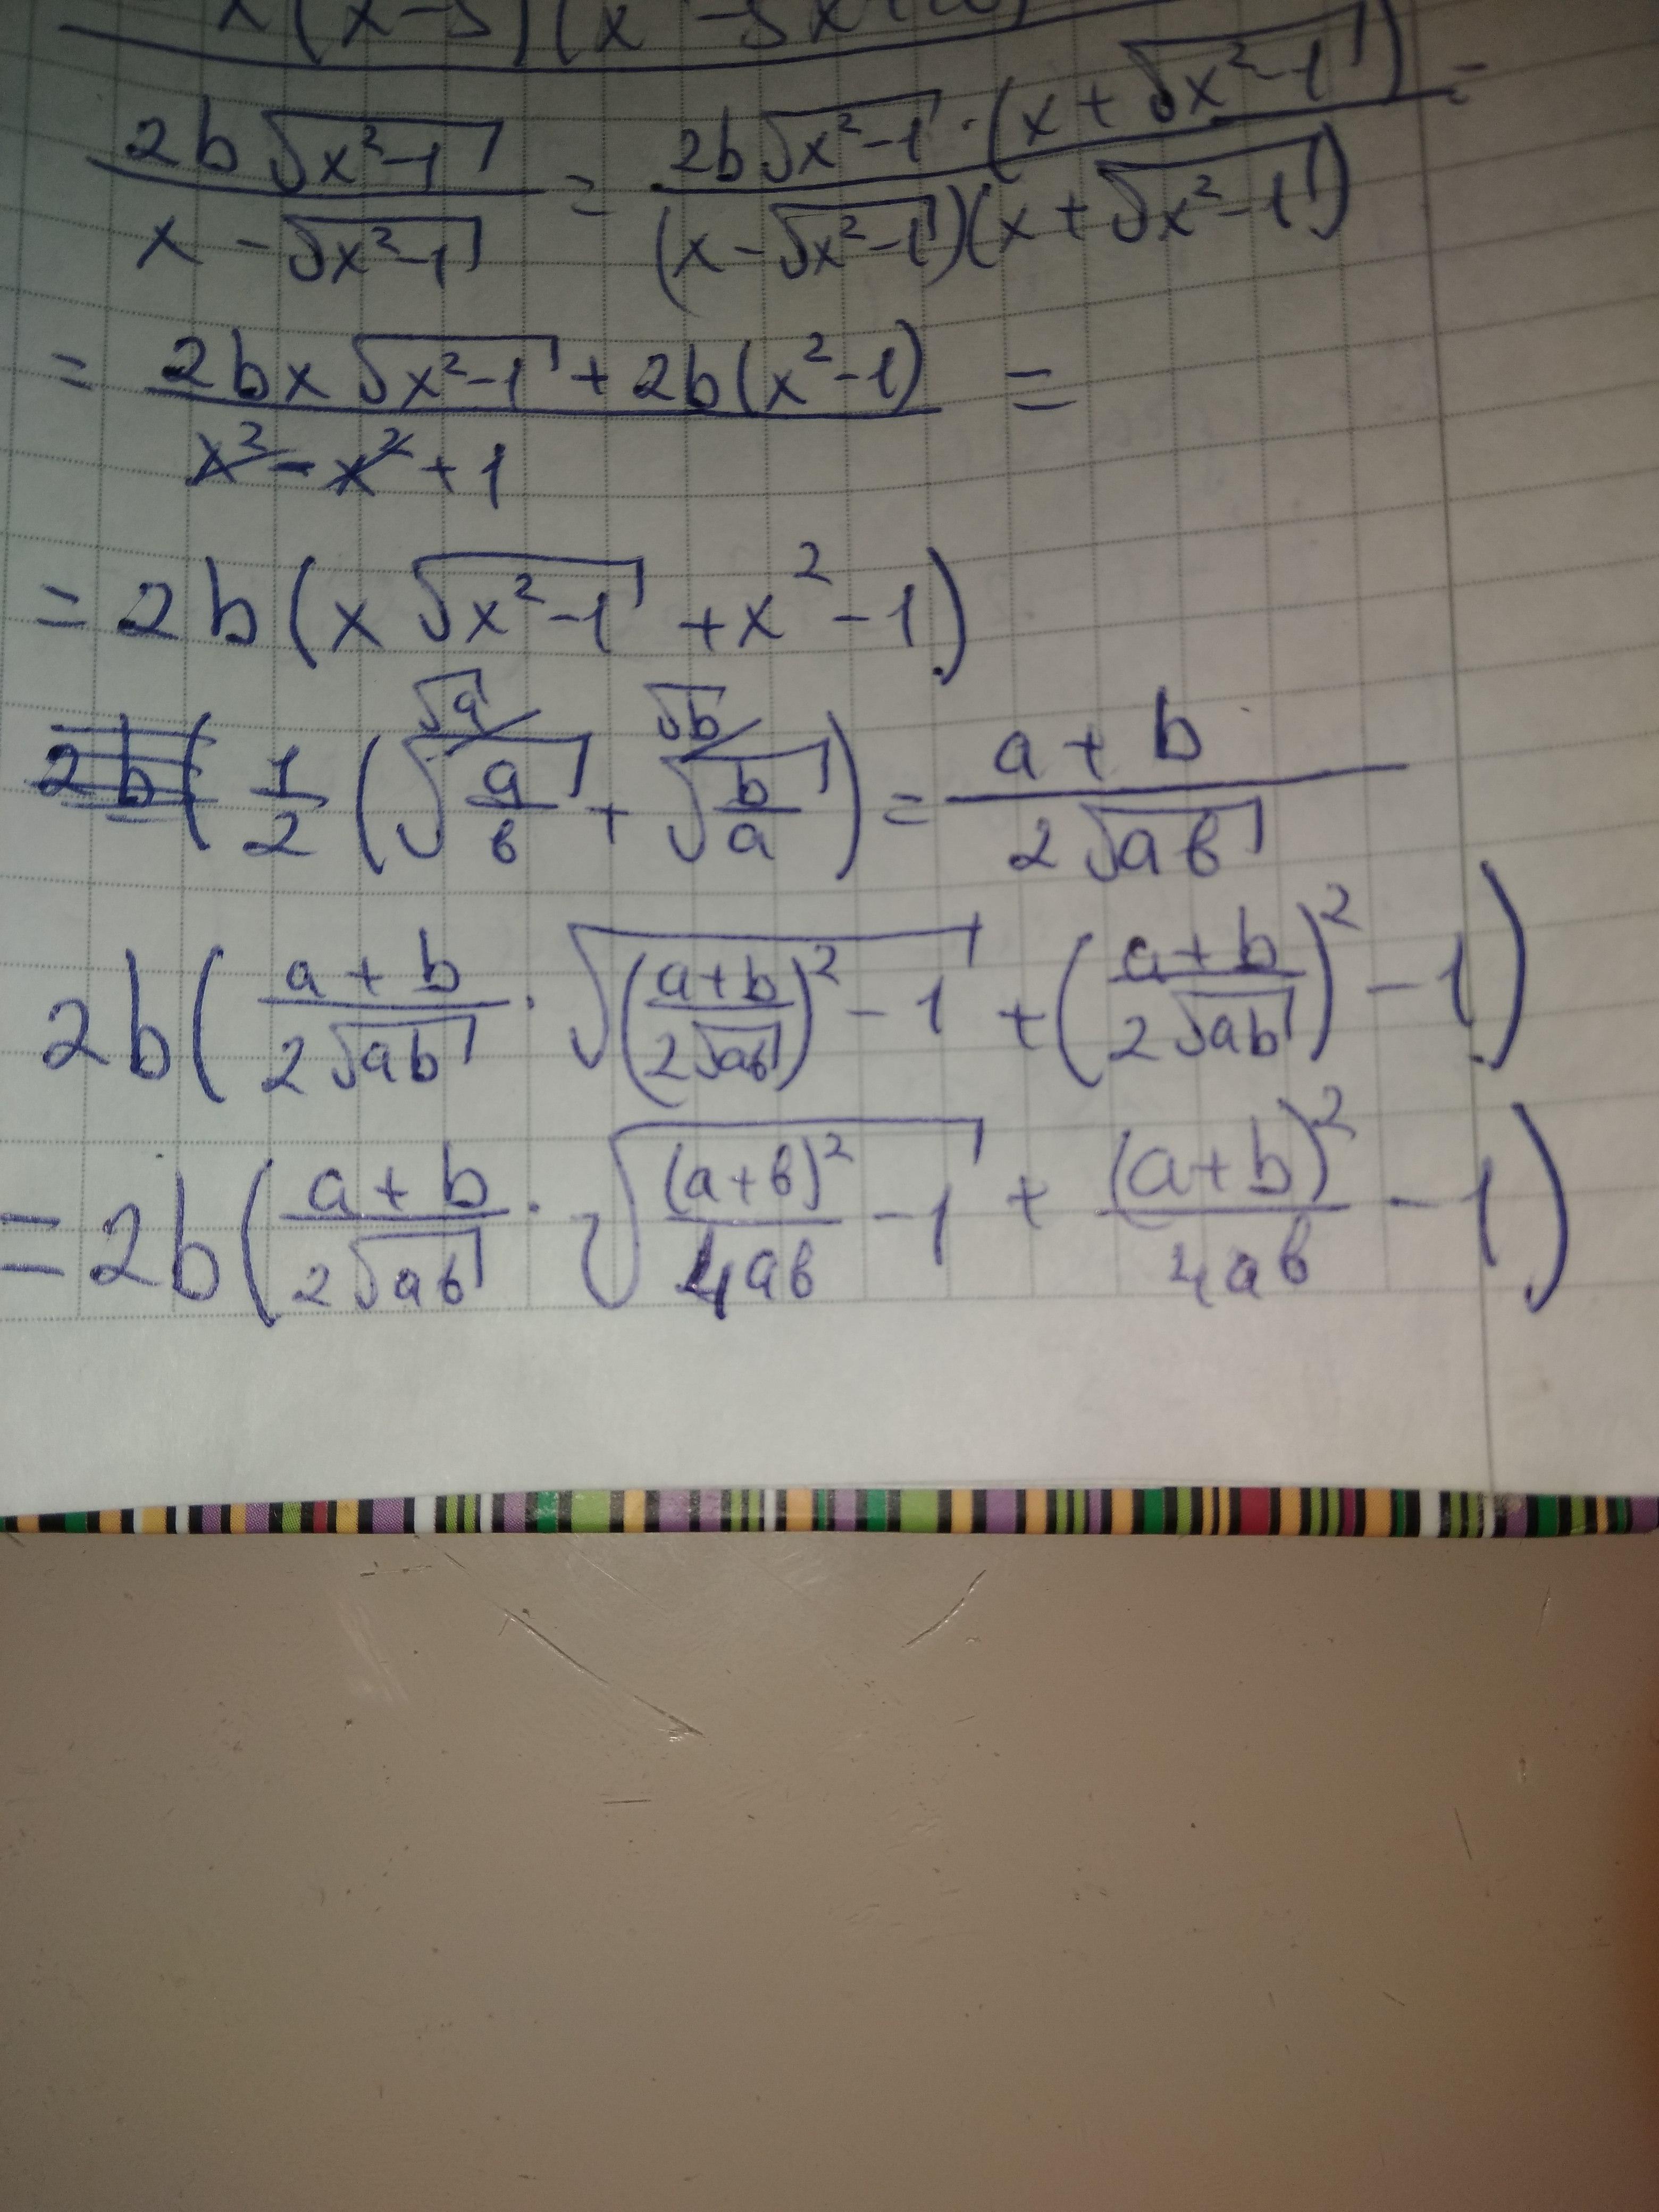 x(x-5)(x-5x
2b√(x²-1) / (x-√(x²-1)) = 2b√(x²-1)·(x+√(x²-1)) / ((x-√(x²-1))(x+√(x²-1))) =
= (2bx√(x²-1)+2b(x²-1)) / (x²-x²+1) =
= 2b(x√(x²-1)+x²-1)
2b( 1/2 (√a/ √(a/b) + √b/ √(b/a)) = (a+b) / (2√(ab))
2b((a+b)/(2√(ab)) · √(((a+b)/(2√(ab)))²-1) + ((a+b)/(2√(ab)))²-1)
= 2b((a+b)/(2√(ab)) · √((a+b)²/(4ab)-1) + (a+b)²/(4ab)-1)